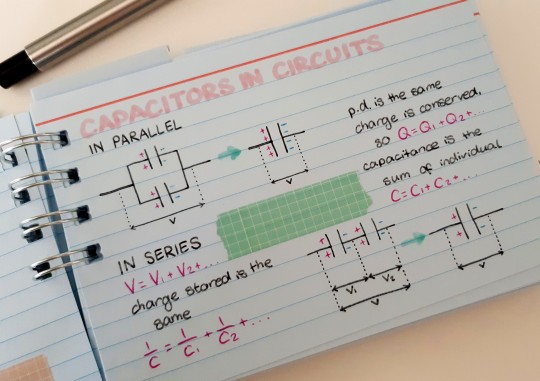 CAPACITORS IN CIRCUITS
IN PARALLEL
V
V
p.d. is the same
charge is conserved,
so Q=Q₁+Q₂+...
capacitance is the
sum of individual
C=C₁+C₂+...
IN SERIES
V=V₁+V₂+...
charge stored is the
same
1/C = 1/C₁ + 1/C₂ + ...
V₁ V₂
V
V